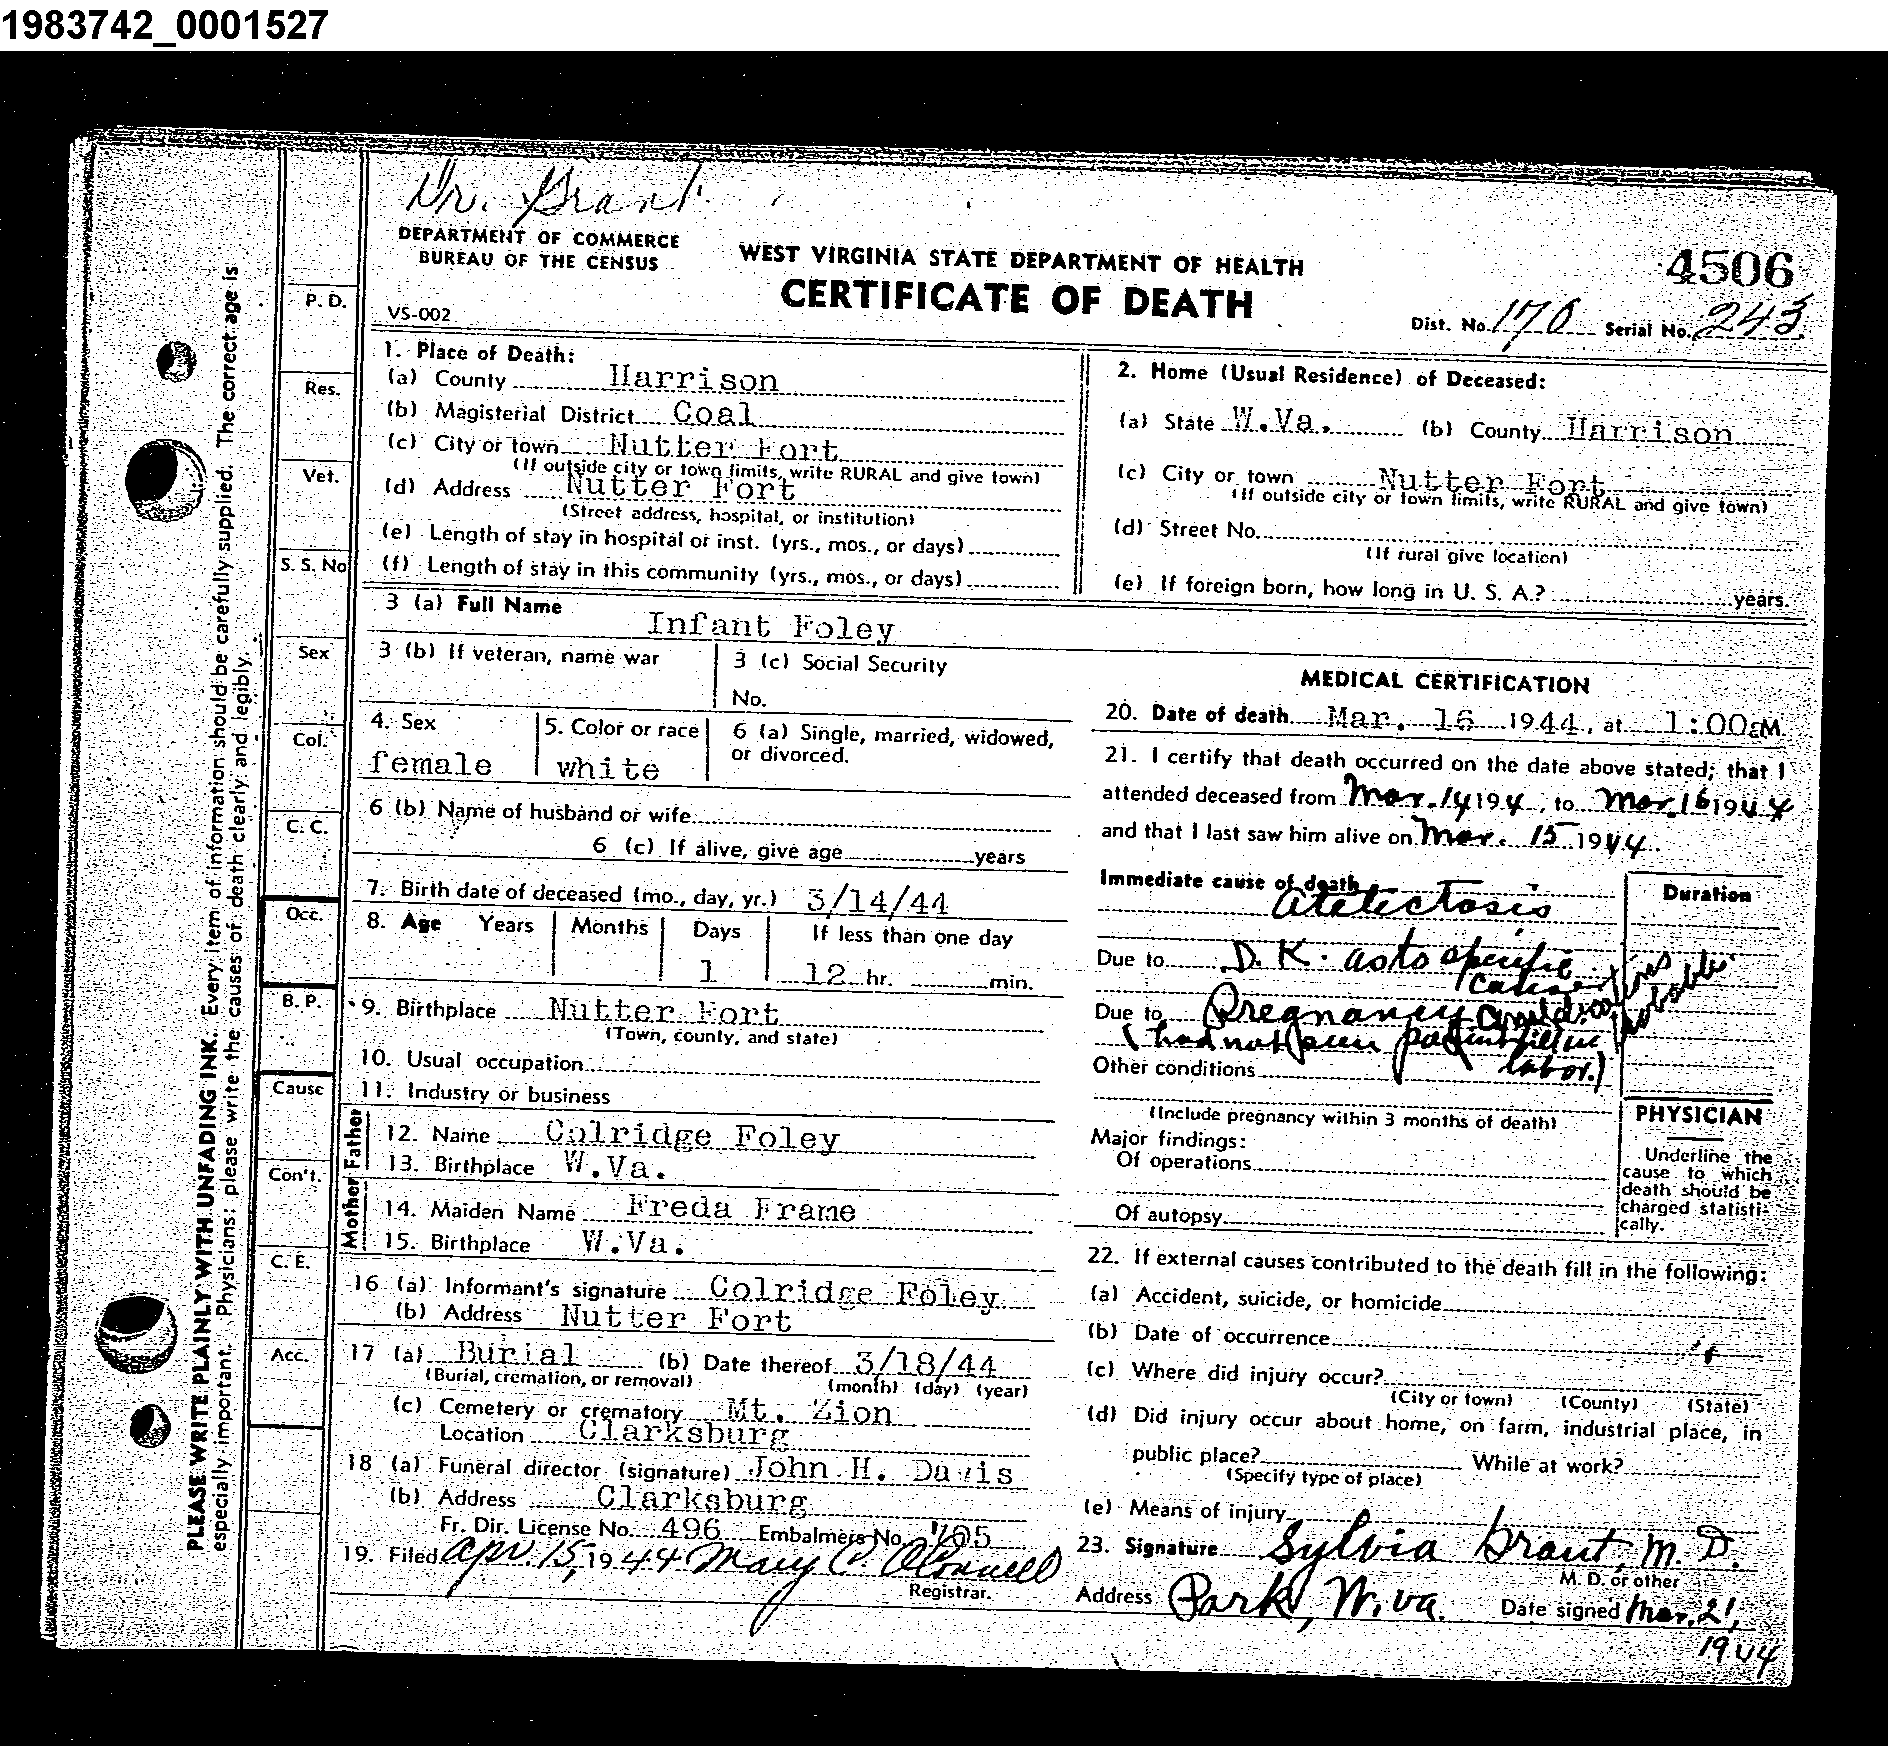 1983742_0001527
Dr. Grant
DEPARTMENT OF COMMERCE
BUREAU OF THE CENSUS
WEST VIRGINIA STATE DEPARTMENT OF HEALTH
CERTIFICATE OF DEATH
4506
VS-002
Dist. No. 170 Serial No. 243
PLEASE WRITE PLAINLY WITH UNFADING INK. Every item of information should be carefully supplied. The correct age is
especially important. Physicians: please write the causes of death clearly and legibly.
P. D.
Res.
Vet.
S. S. No
Sex
Col.
C. C.
Occ.
B. P.
Cause
Con't.
C. E.
Acc.
1. Place of Death:
(a) County Harrison
(b) Magisterial District Coal
(c) City or town Nutter Fort
(If outside city or town limits, write RURAL and give town)
(d) Address Nutter Fort
(Street address, hospital, or institution)
(e) Length of stay in hospital or inst. (yrs., mos., or days)
(f) Length of stay in this community (yrs., mos., or days)
2. Home (Usual Residence) of Deceased:
(a) State W.Va. (b) County Harrison
(c) City or town Nutter Fort
(If outside city or town limits, write RURAL and give town)
(d) Street No.
(If rural give location)
(e) If foreign born, how long in U. S. A.? years.
3 (a) Full Name Infant Foley
3 (b) If veteran, name war
3 (c) Social Security
No.
4. Sex
female
5. Color or race
white
6 (a) Single, married, widowed,
or divorced.
6 (b) Name of husband or wife
6 (c) If alive, give age years
7. Birth date of deceased (mo., day, yr.) 3/14/44
8. Age Years Months Days If less than one day
1 12 hr. min.
9. Birthplace Nutter Fort
(Town, county, and state)
10. Usual occupation
11. Industry or business
Father
12. Name Colridge Foley
13. Birthplace W.Va.
Mother
14. Maiden Name Freda Frame
15. Birthplace W.Va.
16 (a) Informant's signature Colridge Foley
(b) Address Nutter Fort
17 (a) Burial (b) Date thereof 3/18/44
(Burial, cremation, or removal) (month) (day) (year)
(c) Cemetery or crematory Mt. Zion
Location Clarksburg
18 (a) Funeral director (signature) John H. Davis
(b) Address Clarksburg
Fr. Dir. License No. 496 Embalmers No.
19. Filed Apr. 15, 1944 Mary C. O'Connell
Registrar.
MEDICAL CERTIFICATION
20. Date of death Mar. 16 1944, at 1:00aM
21. I certify that death occurred on the date above stated; that I
attended deceased from Mar. 14 194 , to Mar. 16 1944
and that I last saw him alive on Mar. 15 1944.
Immediate cause of death
Atelectosis
Duration
Due to D. K. as to specific
cause
Due to Pregnancy
probable
(had not seen patient till in
labor.)
Other conditions
(Include pregnancy within 3 months of death)
Major findings:
Of operations
Of autopsy
PHYSICIAN
Underline the
cause to which
death should be
charged statisti-
cally.
22. If external causes contributed to the death fill in the following:
(a) Accident, suicide, or homicide
(b) Date of occurrence
(c) Where did injury occur?
(City or town) (County) (State)
(d) Did injury occur about home, on farm, industrial place, in
public place? While at work?
(Specify type of place)
(e) Means of injury
23. Signature Sylvia Grant, M. D.
M. D. or other
Address Park, W. Va. Date signed Mar. 21,
1944